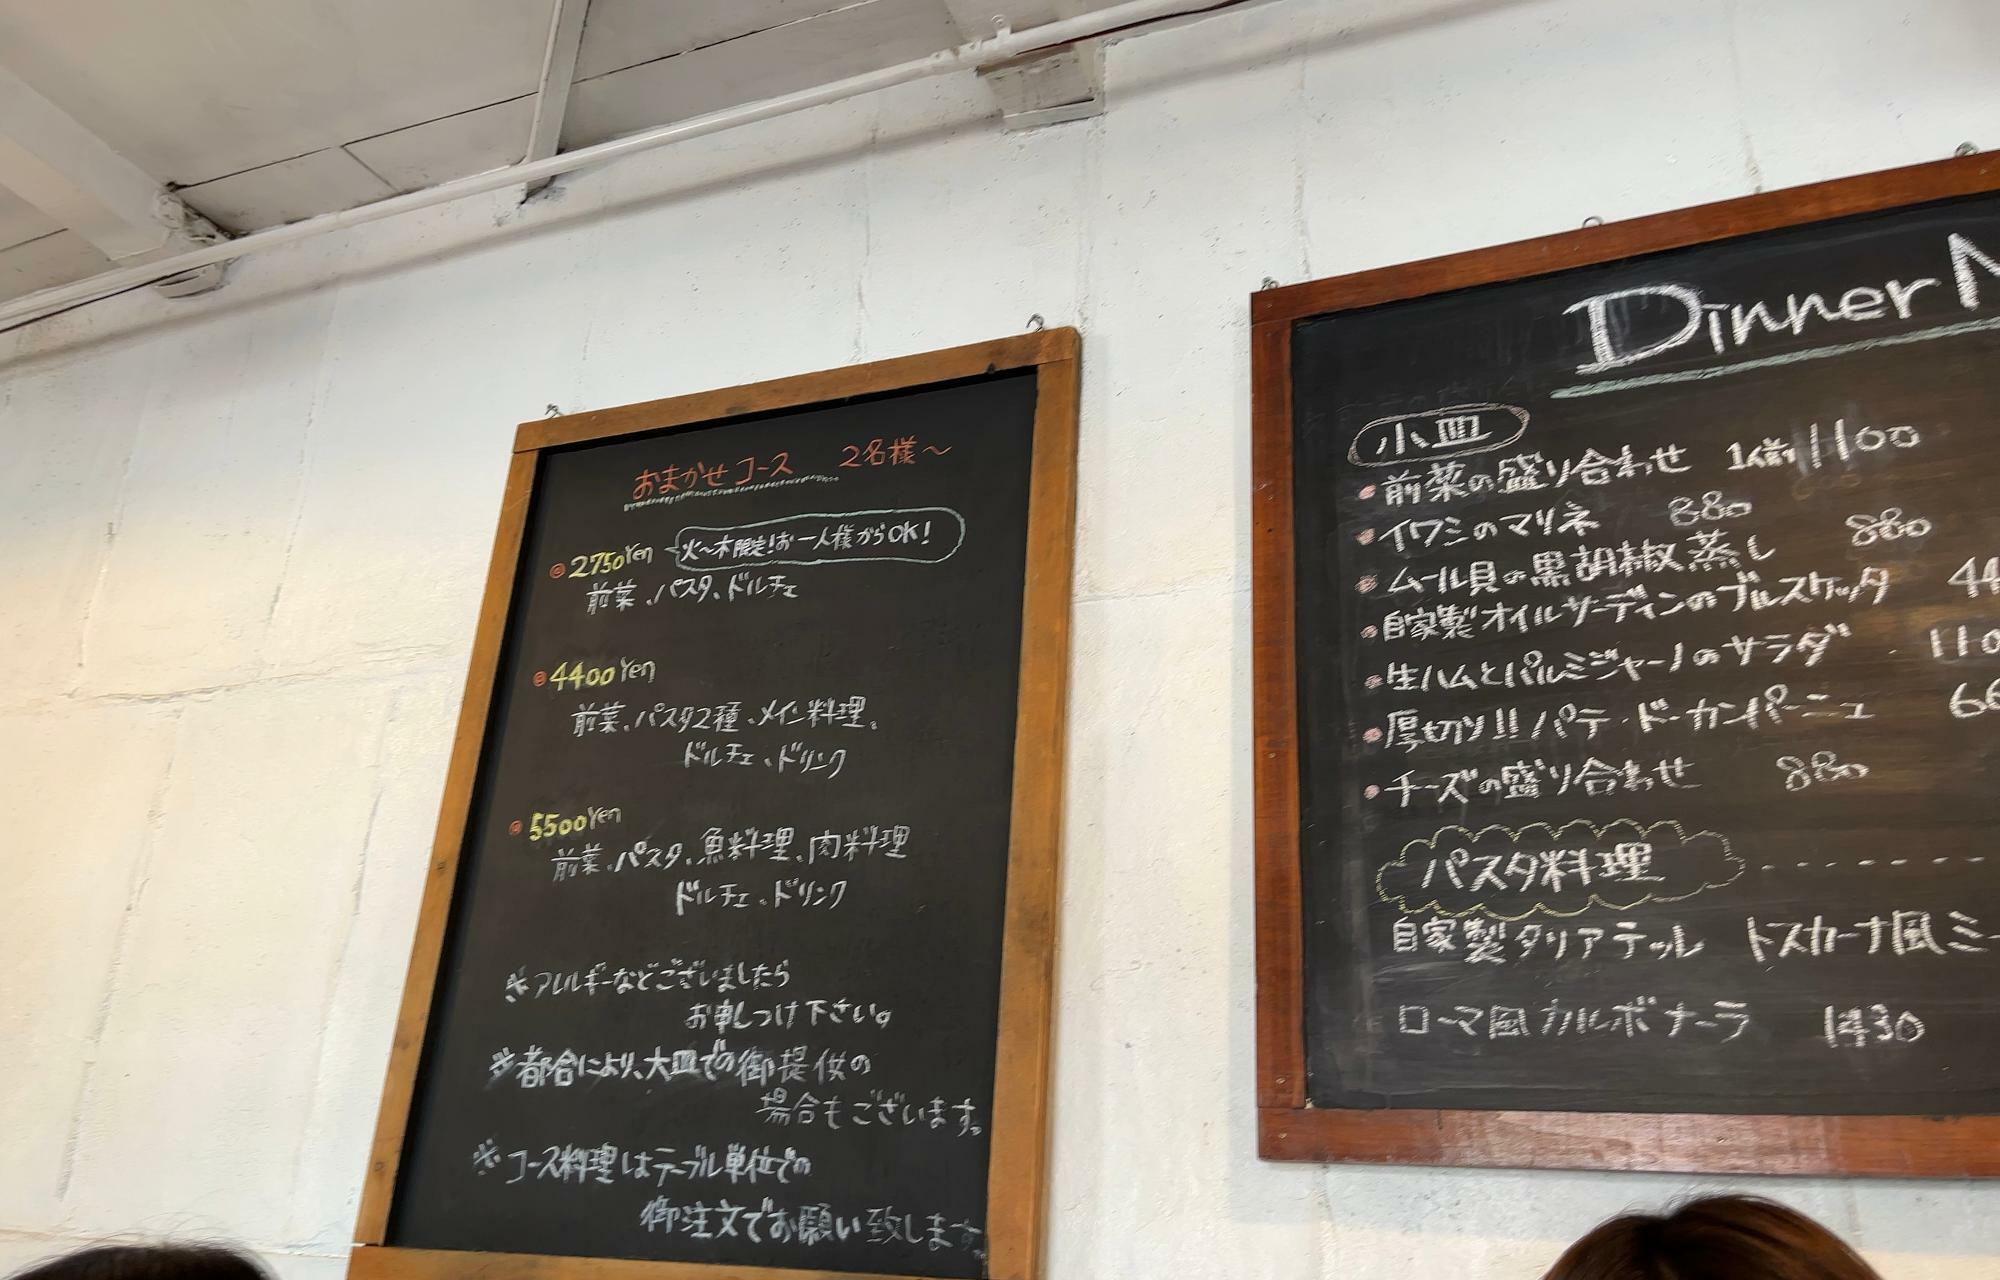 おまかせコース 2名様～
2750Yen 火～木限定!お一人様からOK!
前菜、パスタ、ドルチェ
4400Yen
前菜、パスタ2種、メイン料理、
ドルチェ、ドリンク
5500Yen
前菜、パスタ、魚料理、肉料理
ドルチェ、ドリンク
※アレルギーなどございましたら
お申しつけ下さい。
※都合により、大皿での御提供の
場合もございます。
※コース料理はテーブル単位での
御注文でお願い致します。
Dinner
小皿
・前菜の盛り合わせ 1人前 1100
・イワシのマリネ 880
・ムール貝の黒胡椒蒸し 880
・自家製オイルサーディンのブルスケッタ 44
・生ハムとパルミジャーノのサラダ 110
・厚切り!!パテ・ド・カンパーニュ 66
・チーズの盛り合わせ 880
パスタ料理
自家製タリアテッレ トスカーナ風ミー
ローマ風カルボナーラ 1430